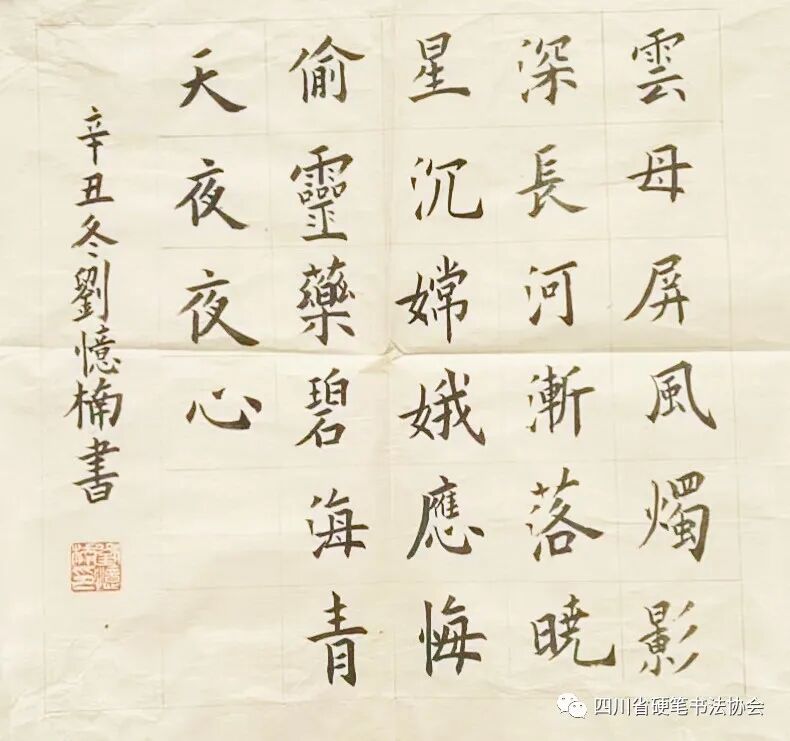 雲母屏風燭影
深長河漸落曉
星沉嫦娥應悔
偷靈藥碧海青
天夜夜心
辛丑冬劉憶楠書
四川省硬笔书法协会